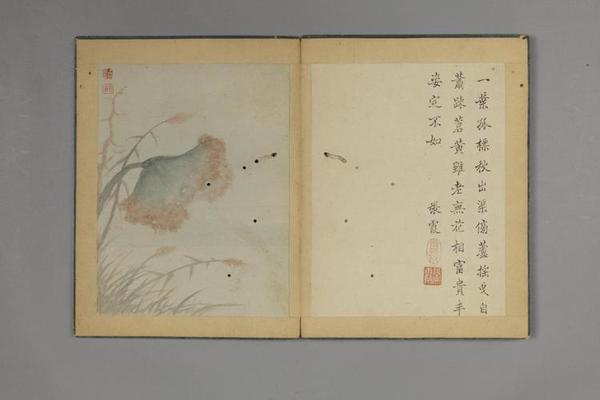 一葉孤標秋出渠傍蘆搖曳自
蕭疎蒼黃雖老無花相富貴丰
姿定不如
張霞